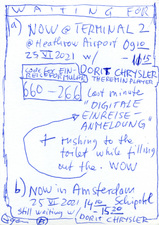 WAITING FOR
a) NOW @ TERMINAL 2
@ Heathrow Airport 0910
25 VI 2021 w/ – 1015
DORIT CHRYSLER
THEREMIN PLAYER
660-266
last minute
"DIGITALE
EINREISE-
ANMELDUNG"
+ rushing to the
toilet while filling
out the. WOW
b) NOW in Amsterdam
25 VI 2021 1410 Schiphol
Still waiting w/ 1520
DORIT CHRYSLER